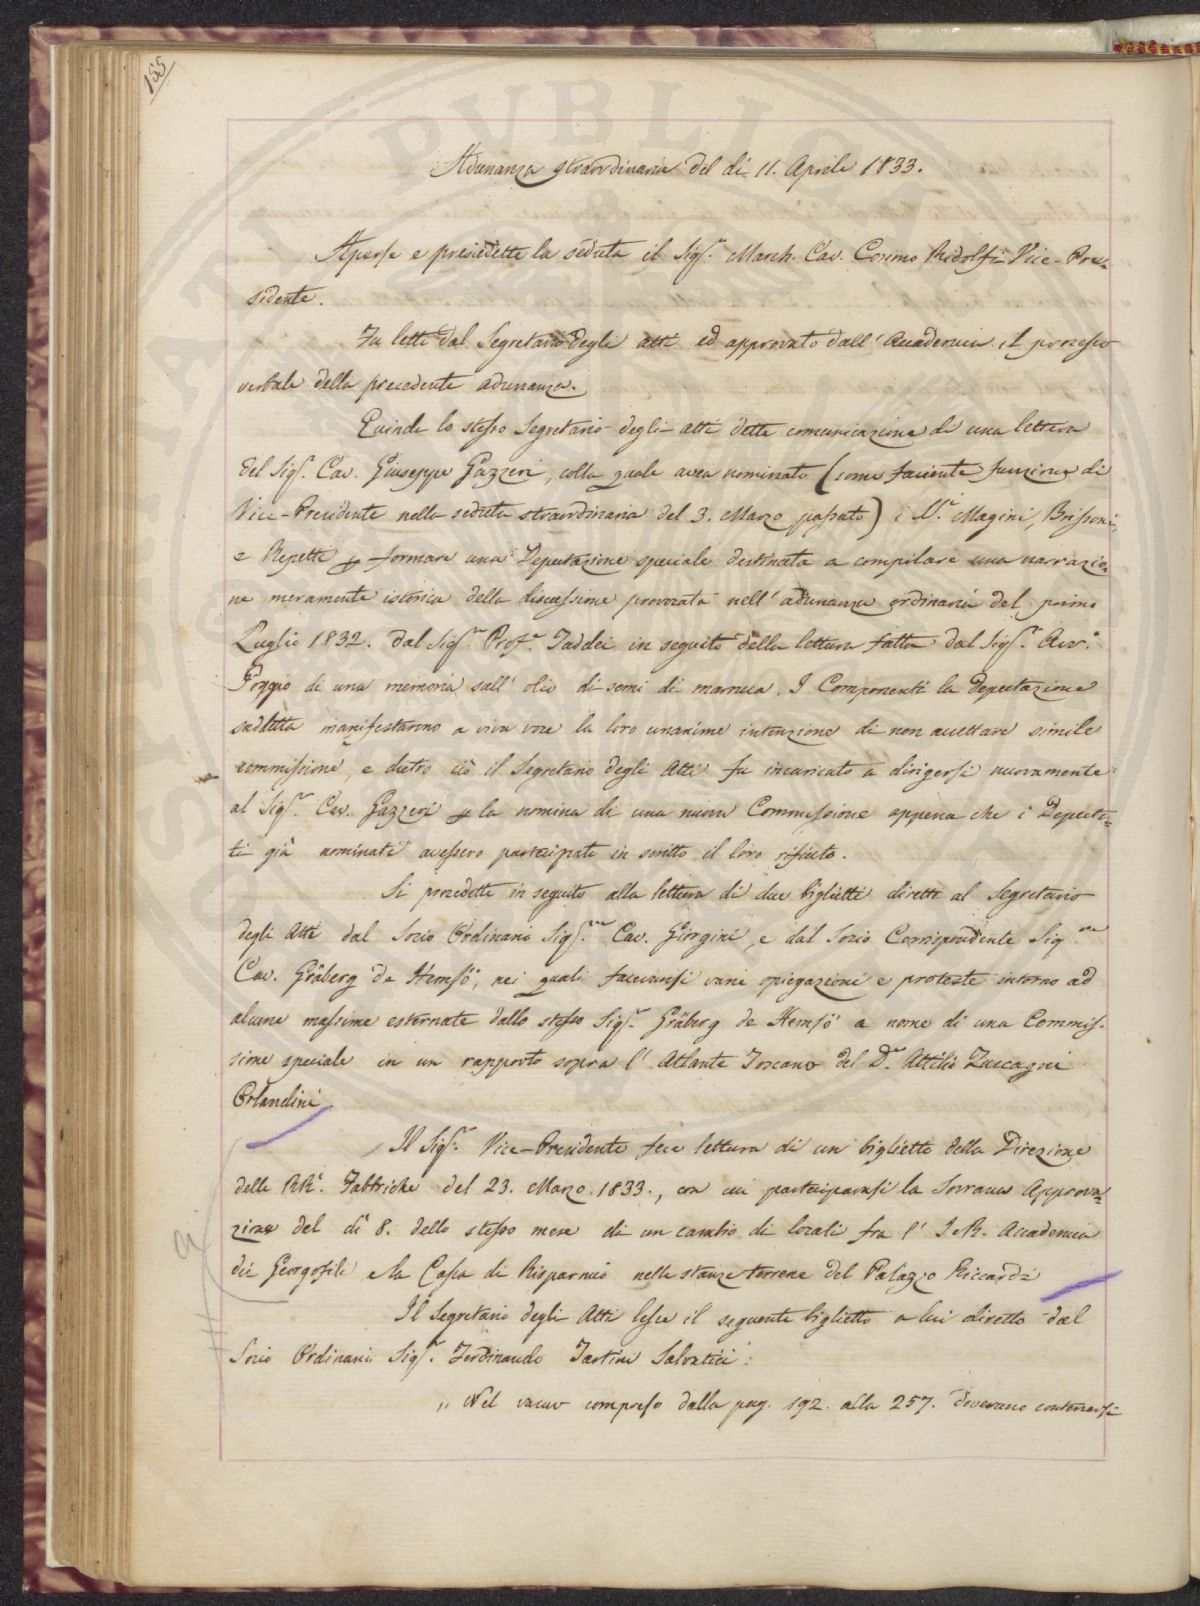 155
Adunanza straordinaria del dì 11. Aprile 1833.
Aperse e presiedette la seduta il Sigr. March. Cav. Cosimo Ridolfi Vice-Pre-
sidente.
Fu letto dal Segretario degli atti ed approvato dall'Accademia il processo
verbale della precedente adunanza.
Quindi lo stesso Segretario degli atti dette comunicazione di una lettera
del Sigr. Cav. Giuseppe Gazzeri, colla quale avea nominato (come facente funzione di
Vice-Presidente nella seduta straordinaria del 3. Marzo passato) i Sri. Magini, Brissoni,
e Repetti p formare una Deputazione speciale destinata a compilare una narrazio-
ne meramente istorica della discussione provocata nell'adunanza ordinaria del primo
Luglio 1832. dal Sigr. Profr. Taddei in seguito della lettura fatta dal Sigr. Avvo.
Poggio di una memoria sull'olio di semi di marruca. I Componenti la Deputazione
suddetta manifestarono a viva voce la loro unanime intenzione di non accettare simile
commissione, e dietro ciò il Segretario degli Atti fu incaricato a dirigersi nuovamente
al Sigr. Cav. Gazzeri p la nomina di una nuova Commissione appena che i Deputa-
ti già nominati avessero partecipato in scritto il loro rifiuto.
Si procedette in seguito alla lettura di due biglietti diretti al Segretario
degli Atti dal Socio Ordinario Sigre. Cav. Giorgini, e dal Socio Corrispondente Sigre.
Cav. Gräberg de Hemsö, nei quali facevansi varie spiegazioni e proteste intorno ad
alcune massime esternate dallo stesso Sigr. Gräberg de Hemsö a nome di una Commis-
sione speciale in un rapporto sopra l'Atlante Toscano del Dr. Attilio Zuccagni
Orlandini.
Il Sigr. Vice-Presidente fece lettura di un biglietto della Direzione
delle RRi. Fabbriche del 23. Marzo 1833., con cui partecipavasi la Sovrana Approva-
zione del dì 8. dello stesso mese di un cambio di locali fra l'I. e R. Accademia
dei Georgofili e la Cassa di Risparmio nelle stanze terrene del Palazzo Riccardi
Il Segretario degli Atti lesse il seguente biglietto a lui diretto dal
Socio Ordinario Sigr. Ferdinando Tartini Salvatici:
„ Nel vacuo compreso dalla pag. 192. alla 257. dovevano contenersi